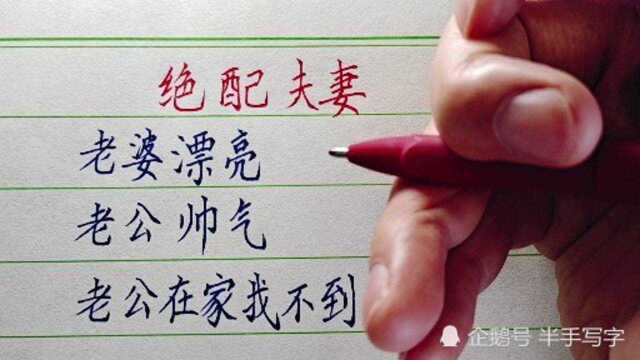 绝配夫妻
老婆漂亮
老公帅气
老公在家我不到
企鹅号 半手写字